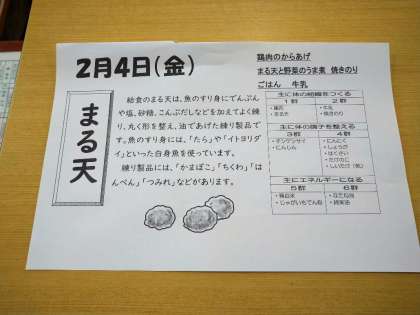 2月4日(金)
まる天
給食のまる天は、魚のすり身にでんぷん
や塩、砂糖、こんぶだしなどを加えてよく練
り、丸く形を整え、油であげた練り製品で
す。魚のすり身には、「たら」や「イトヨリダ
イ」といった白身魚を使っています。
練り製品には、「かまぼこ」「ちくわ」「は
んぺん」「つみれ」などがあります。
鶏肉のからあげ
まる天と野菜のうま煮 焼きのり
ごはん 牛乳
主に体の組織をつくる
1群 2群
・鶏肉 ・牛乳
・まる天 ・焼きのり
主に体の調子を整える
3群 4群
・チンゲンサイ ・にんにく
・にんじん ・しょうが
・はくさい
・たけのこ
・しいたけ(乾)
主にエネルギーになる
5群 6群
・じゃがいもでん粉